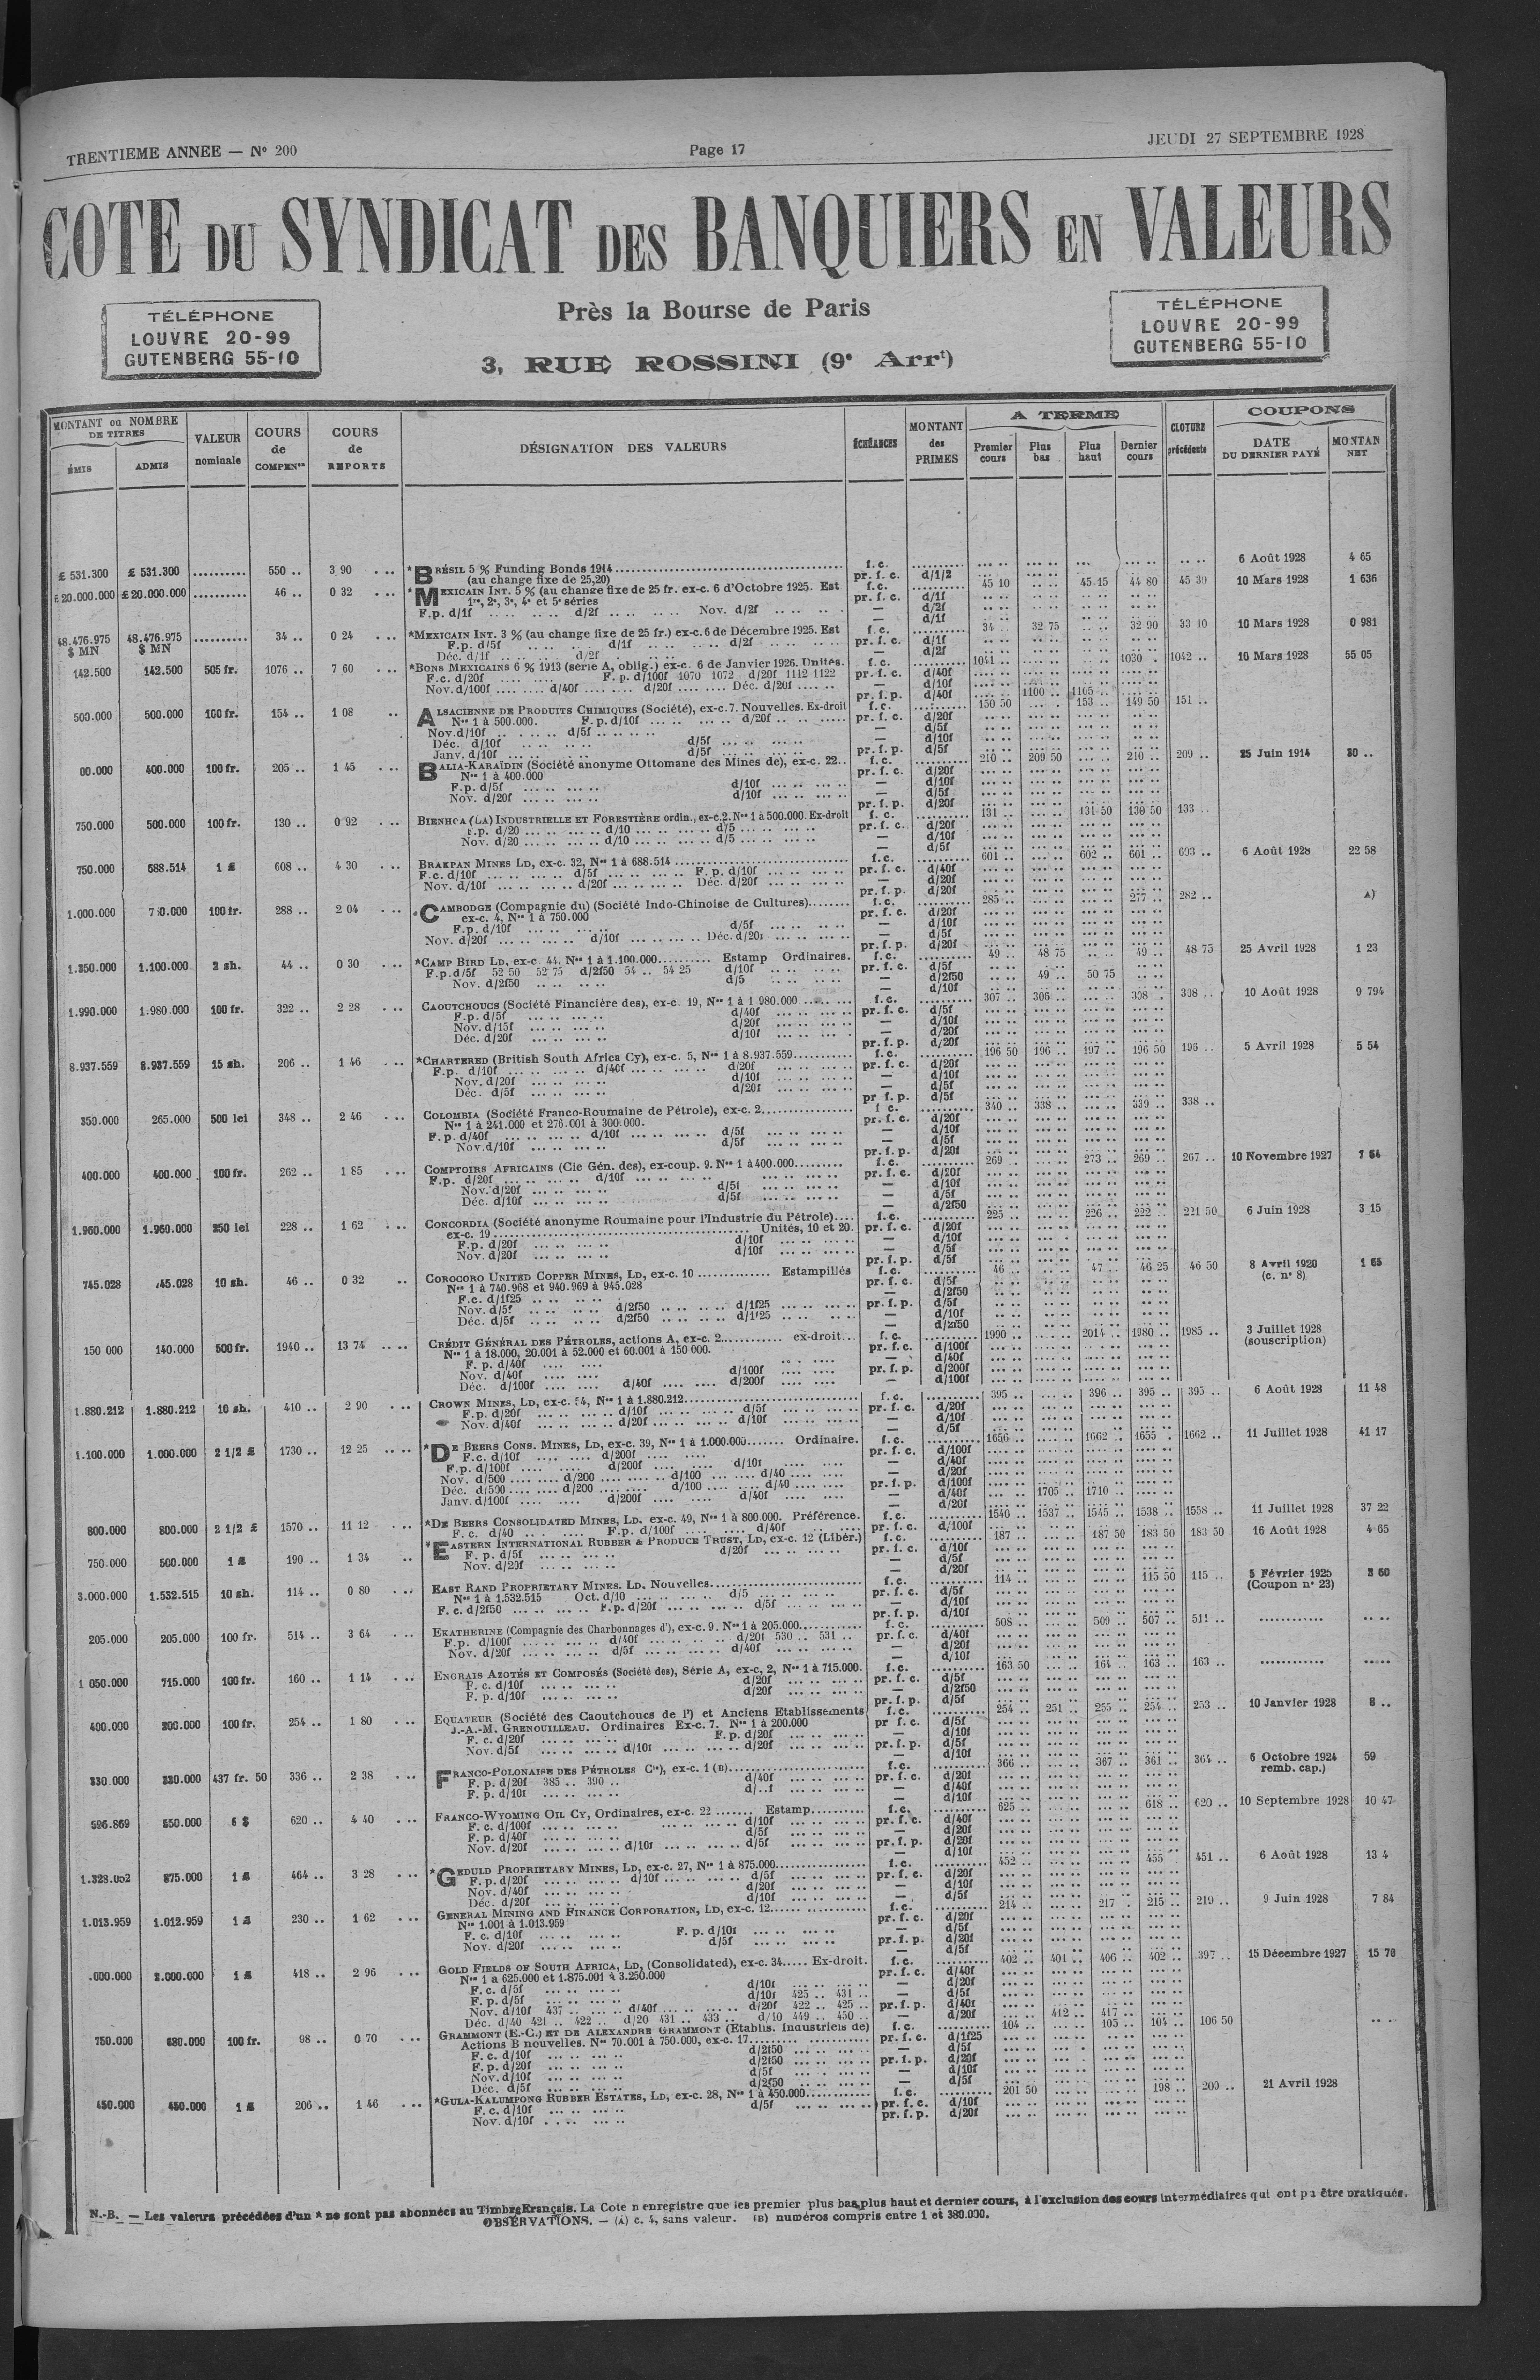 TRENTIEME ANNEE — N° 200
Page 17
JEUDI 27 SEPTEMBRE 1928
COTE DU SYNDICAT DES BANQUIERS EN VALEURS
TÉLÉPHONE
LOUVRE 20-99
GUTENBERG 55-10
Près la Bourse de Paris
3, RUE ROSSINI (9e Arrt)
TÉLÉPHONE
LOUVRE 20-99
GUTENBERG 55-10
MONTANT ou NOMBRE DE TITRES
ÉMIS
ADMIS
VALEUR nominale
COURS de COMPENon
COURS de REPORTS
DÉSIGNATION DES VALEURS
ÉCHÉANCES
MONTANT des PRIMES
A TERME
Premier cours
Plus bas
Plus haut
Dernier cours
CLOTURE précédente
COUPONS
DATE DU DERNIER PAYÉ
MONTAN NET
£ 531.300 £ 531.300 .......... 550 .. 3 90 *BRÉSIL 5 % Funding Bonds 1914 f. c. 6 Août 1928 4 65
(au change fixe de 25,20) pr. f. c. d/1/2
£20.000.000 £20.000.000 .......... 46 .. 0 32 *MEXICAIN INT. 5 % (au change fixe de 25 fr. ex-c. 6 d'Octobre 1925. Est f. c. 45 10 45 15 44 80 10 Mars 1928 1 636
1re, 2e, 3e, 4e et 5e séries pr. f. c. d/1f
F.p. d/1f d/2f Nov. d/2f — d/2f
48.476.975 $ MN 48.476.975 $ MN .......... 34 .. 0 24 *MEXICAIN INT. 3 % (au change fixe de 25 fr.) ex-c. 6 de Décembre 1925. Est f. c. 34 .. 32 75 32 90 33 10 10 Mars 1928 0 981
F.p. d/5f d/1f d/2f pr. f. c. d/1f
Déc. d/1f d/2f — d/2f
142.500 142.500 505 fr. 1076 .. 7 60 *BONS MEXICAINS 6 % 1913 (série A, oblig.) ex-c. 6 de Janvier 1926. Unités. f. c. 1041 .. 1030 . 1042 .. 16 Mars 1928 55 05
F.c. d/20f F. p. d/100f 1070 1072 d/20f 1112 1122 pr. f. c. d/40f
Nov. d/100f d/40f d/20f Déc. d/20f — d/10f
pr. f. p. d/40f 1100 .. 1105 ..
500.000 500.000 100 fr. 154 .. 1 08 ALSACIENNE DE PRODUITS CHIMIQUES (Société), ex-c. 7. Nouvelles. Ex-droit f. c. 150 50 153 .. 149 50 151 ..
Nos 1 à 500.000. F. p. d/10f d/20f pr. f. c. d/20f
Nov. d/10f d/5f — d/5f
Déc. d/10f d/5f — d/10f
Janv. d/10f d/5f pr. f. p. d/5f
00.000 400.000 100 fr. 205 .. 1 45 BALIA-KARAÏDIN (Société anonyme Ottomane des Mines de), ex-c. 22.. f. c. 210 .. 209 50 210 .. 209 .. 25 Juin 1914 30 ..
Nos 1 à 400.000 pr. f. c. d/20f
F.p. d/5f d/10f — d/10f
Nov. d/20f d/10f — d/5f
pr. f. p. d/20f
750.000 500.000 100 fr. 130 .. 0 92 BIENHOA (LA) INDUSTRIELLE ET FORESTIÈRE ordin., ex-c. 2. Nos 1 à 500.000. Ex-droit f. c. 131 .. 131 50 130 50 133 ..
F.p. d/20 d/10 d/5 pr. f. c. d/20f
Nov. d/20 d/10 d/5 — d/10f
— d/5f
750.000 688.514 1 £ 608 .. 4 30 BRAKPAN MINES LD, ex-c. 32, Nos 1 à 688.514 f. c. 601 .. 602 .. 601 .. 603 .. 6 Août 1928 22 58
F.c. d/10f d/5f F. p. d/10f pr. f. c. d/40f
Nov. d/10f d/20f Déc. d/20f — d/20f
pr. f. p. d/20f
1.000.000 100 fr. 288 .. 2 04 *CAMBODGE (Compagnie du) (Société Indo-Chinoise de Cultures) f. c. 285 .. 277 .. 282 .. A)
ex-c. 4, Nos 1 à 750.000 pr. f. c. d/20f
F.p. d/10f d/5f — d/10f
Nov. d/20f d/10f Déc. d/20f — d/5f
pr. f. p. d/20f
1.350.000 1.100.000 2 sh. 44 .. 0 30 *CAMP BIRD LD, ex-c. 44. Nos 1 à 1.100.000 Estamp Ordinaires. f. c. 49 .. 48 75 49 .. 48 75 25 Avril 1928 1 23
F.p. d/5f 52 50 52 75 d/2f50 54 .. 54 25 d/10f pr. f. c. d/5f
Nov. d/2f50 d/5 — d/2f50 49 .. 50 75
— d/10f
1.990.000 1.980.000 100 fr. 322 .. 2 28 CAOUTCHOUCS (Société Financière des), ex-c. 19, Nos 1 à 1 980.000 f. c. 307 .. 306 .. 308 . 308 .. 10 Août 1928 9 794
F.p. d/5f d/40f pr. f. c. d/5f
Nov. d/15f d/20f — d/10f
Déc. d/20f d/10f — d/20f
pr. f. p. d/20f
8.937.559 8.937.559 15 sh. 206 .. 1 46 *CHARTERED (British South Africa Cy), ex-c. 5, Nos 1 à 8.937.559 f. c. 196 50 196 .. 197 .. 196 50 196 .. 5 Avril 1928 5 54
F.p. d/10f d/40f d/20f pr. f. c. d/20f
Nov. d/20f d/10f — d/10f
Déc. d/5f d/20f — d/5f
pr f. p. d/5f
350.000 265.000 500 lei 348 .. 2 46 COLOMBIA (Société Franco-Roumaine de Pétrole), ex-c. 2 f c. 340 .. 338 .. 339 .. 338 ..
Nos 1 à 241.000 et 276.001 à 300.000. pr. f. c. d/20f
F. p. d/40f d/10f d/5f — d/10f
Nov. d/10f d/5f — d/5f
pr. f. p. d/20f
400.000 400.000 100 fr. 262 .. 1 85 COMPTOIRS AFRICAINS (Cie Gén. des), ex-coup. 9. Nos 1 à 400.000 f. c. 269 . 273 .. 269 .. 267 .. 10 Novembre 1927 7 64
F.p. d/20f d/10f pr. f. c. d/20f
Nov. d/20f d/5f — d/10f
Déc. d/10f d/5f — d/5f
— d/2f50
1.960.000 1.960.000 250 lei 228 .. 1 62 CONCORDIA (Société anonyme Roumaine pour l'Industrie du Pétrole) f. c. 225 .. 226 .. 222 .. 221 50 6 Juin 1928 3 15
ex-c. 19 Unités, 10 et 20. pr. f. c. d/20f
F.p. d/20f d/10f — d/10f
Nov. d/20f d/10f — d/5f
pr. f. p. d/5f
745.028 745.028 10 sh. 46 .. 0 32 COROCORO UNITED COPPER MINES, LD, ex-c. 10 Estampillés f. c. 46 .. 47 .. 46 25 46 50 8 Avril 1920 1 65
Nos 1 à 740.968 et 940.969 à 945.028 pr. f. c. d/5f (c. n° 8)
F.c. d/1f25 — d/2f50
Nov. d/5f d/2f50 d/1f25 pr. f. p. d/5f
Déc. d/5f d/2f50 d/1f25 — d/10f
— d/2f50
150 000 140.000 500 fr. 1940 .. 13 74 CRÉDIT GÉNÉRAL DES PÉTROLES, actions A, ex-c. 2 ex-droit... f. c. 1990 .. 2014 .. 1980 .. 1985 .. 3 Juillet 1928
Nos 1 à 18.000, 20.001 à 52.000 et 60.001 à 150 000. pr. f. c. d/100f (souscription)
F. p. d/40f — d/40f
Nov. d/40f d/100f pr. f. p. d/200f
Déc. d/100f d/40f d/200f — d/100f
1.880.212 1.880.212 10 sh. 410 .. 2 90 CROWN MINES, LD, ex-c. 54, Nos 1 à 1.880.212 f. c. 395 .. 396 .. 395 .. 395 .. 6 Août 1928 11 48
F.p. d/20f d/10f d/5f pr. f. c. d/20f
Nov. d/40f d/20f d/10f — d/10f
— d/5f
1.100.000 1.000.000 2 1/2 £ 1730 .. 12 25 *DE BEERS CONS. MINES, LD, ex-c. 39, Nos 1 à 1.000.000 Ordinaire. f. c. 1656 .. 1662 .. 1655 .. 1662 .. 11 Juillet 1928 41 17
F.c. d/10f d/200f pr. f. c. d/100f
F.p. d/100f d/200f d/10f — d/40f
Nov. d/500 d/200 d/100 d/40 — d/20f
Déc. d/500 d/200 d/100 d/40 pr. f. p. d/100f
Janv. d/100f d/200f d/40f — d/40f 1705 .. 1710 ..
— d/20f
800.000 800.000 2 1/2 £ 1570 .. 11 12 *DE BEERS CONSOLIDATED MINES, LD, ex-c. 49, Nos 1 à 800.000. Préférence. f. c. 1540 .. 1537 .. 1545 .. 1538 .. 1558 .. 11 Juillet 1928 37 22
F. c. d/40 F.p. d/100f d/40f pr. f. c. d/100f
750.000 560.000 1 £ 190 .. 1 34 *EASTERN INTERNATIONAL RUBBER & PRODUCE TRUST, LD, ex-c. 12 (Libér.) f. c. 187 .. 187 50 183 50 183 50 16 Août 1928 4 65
F. p. d/5f d/20f pr. f. c. d/10f
Nov. d/20f — d/5f
— d/20f
3.000.000 1.532.515 10 sh. 114 .. 0 80 EAST RAND PROPRIETARY MINES. LD, Nouvelles f. c. 114 .. 115 50 115 .. 5 Février 1925 3 60
Nos 1 à 1.532.515 Oct. d/10 d/5 pr. f. c. d/5f (Coupon n° 23)
F. c. d/2f50 F.p. d/20f d/5f — d/10f
pr. f. p. d/10f
205.000 205.000 100 fr. 514 .. 3 64 EKATHERINE (Compagnie des Charbonnages d'), ex-c. 9. Nos 1 à 205.000 f. c. 508 .. 509 .. 507 .. 511 ..
F.p. d/100f d/40f d/20f 530 .. 531 .. pr. f. c. d/40f
Nov. d/20f d/5f d/40f — d/20f
— d/10f
1 050.000 715.000 100 fr. 160 .. 1 14 ENGRAIS AZOTÉS ET COMPOSÉS (Société des), Série A, ex-c, 2, Nos 1 à 715.000. f. c. 163 50 164 .. 163 .. 163 ..
F. c. d/10f d/20f pr. f. c. d/5f
F. p. d/10f d/20f — d/2f50
pr. f. p. d/5f
400.000 200.000 100 fr. 254 .. 1 80 EQUATEUR (Société des Caoutchoucs de l') et Anciens Etablissements f. c. 254 .. 251 .. 255 .. 254 .. 253 .. 10 Janvier 1928 8 ..
J.-A.-M. GRENOUILLEAU. Ordinaires Ex-c. 7. Nos 1 à 200.000 pr f. c. d/5f
F. c. d/20f F. p. d/20f — d/10f
Nov. d/5f d/10f d/20f pr. f. p. d/5f
— d/10f
330.000 330.000 437 fr. 50 336 .. 2 38 FRANCO-POLONAISE DES PÉTROLES Cie), ex-c. 1 (B) f. c. 366 .. 367 .. 361 .. 364 .. 6 Octobre 1924 59
F. p. d/20f 385 .. 390 .. d/40f pr. f. c. d/20f remb. cap.)
F. p. d/10f — d/40f
— d/10f
596.869 550.000 6 $ 620 .. 4 40 FRANCO-WYOMING OIL CY, Ordinaires, ex-c. 22 Estamp f. c. 625 .. 618 .. 620 .. 10 Septembre 1928 10 47
F. c. d/100f d/10f pr. f. c. d/40f
F. p. d/40f d/5f — d/20f
Nov. d/20f d/10f d/5f pr. f. p. d/20f
— d/10f
875.000 1 £ 464 .. 3 28 *GEDULD PROPRIETARY MINES, LD, ex-c. 27, Nos 1 à 875.000 f. c. 452 .. 455 451 .. 6 Août 1928 13 4
F. p. d/20f d/10f d/5f pr. f. c. d/20f
Nov. d/40f d/20f — d/10f
Déc. d/20f d/10f — d/5f
1.013.959 1.012.959 1 £ 230 .. 1 62 GENERAL MINING AND FINANCE CORPORATION, LD, ex-c. 12 f. c. 214 .. 217 . 215 .. 219 .. 9 Juin 1928 7 84
Nos 1.001 à 1.013.959 pr. f. c. d/20f
F. c. d/10f F. p. d/10f — d/5f
Nov. d/20f d/5f pr. f. p. d/20f
— d/5f
.000.000 2.000.000 1 £ 418 .. 2 96 GOLD FIELDS OF SOUTH AFRICA, LD, (Consolidated), ex-c. 34..... Ex-droit. f. c. 402 .. 401 .. 406 .. 402 .. 397 .. 15 Décembre 1927 15 70
Nos 1 à 625.000 et 1.875.001 à 3.250.000 pr. f. c. d/40f
F. c. d/5f d/10f — d/20f
F. p. d/5f d/10f 425 .. 431 .. — d/5f
Nov. d/10f 437 .. d/40f d/20f 422 .. 425 .. pr. f. p. d/40f
Déc. d/40 421 .. 422 .. d/20 431 .. 433 .. d/10 449 .. 450 .. — d/20f 412 .. 417 ..
750.000 680.000 100 fr. 98 .. 0 70 GRAMMONT (E.-C.) ET DE ALEXANDRE GRAMMONT (Etablis. Industriels de) f. c. 104 .. 105 .. 104 .. 106 50
Actions B nouvelles. Nos 70.001 à 750.000, ex-c. 17 pr. f. c. d/1f25
F. c. d/10f d/2f50 — d/5f
F. p. d/20f d/2f50 pr. f. p. d/20f
Nov. d/10f d/5f — d/10f
Déc. d/5f d/2f50 — d/5f
450.000 450.000 1 £ 206 .. 1 46 *GULA-KALUMPONG RUBBER ESTATES, LD, ex-c. 28, Nos 1 à 450.000 f. c. 201 50 198 .. 200 .. 21 Avril 1928
F. c. d/10f d/5f pr. f. c. d/10f
Nov. d/10f pr. f. p. d/20f
N.-B. — Les valeurs précédées d'un * ne sont pas abonnées au Timbre Français. La Cote n enregistre que les premier plus bas, plus haut et dernier cours, à l'exclusion des cours intermédiaires qui ont pu être pratiqués.
OBSERVATIONS. — (A) c. 4, sans valeur. (B) numéros compris entre 1 et 380.000.